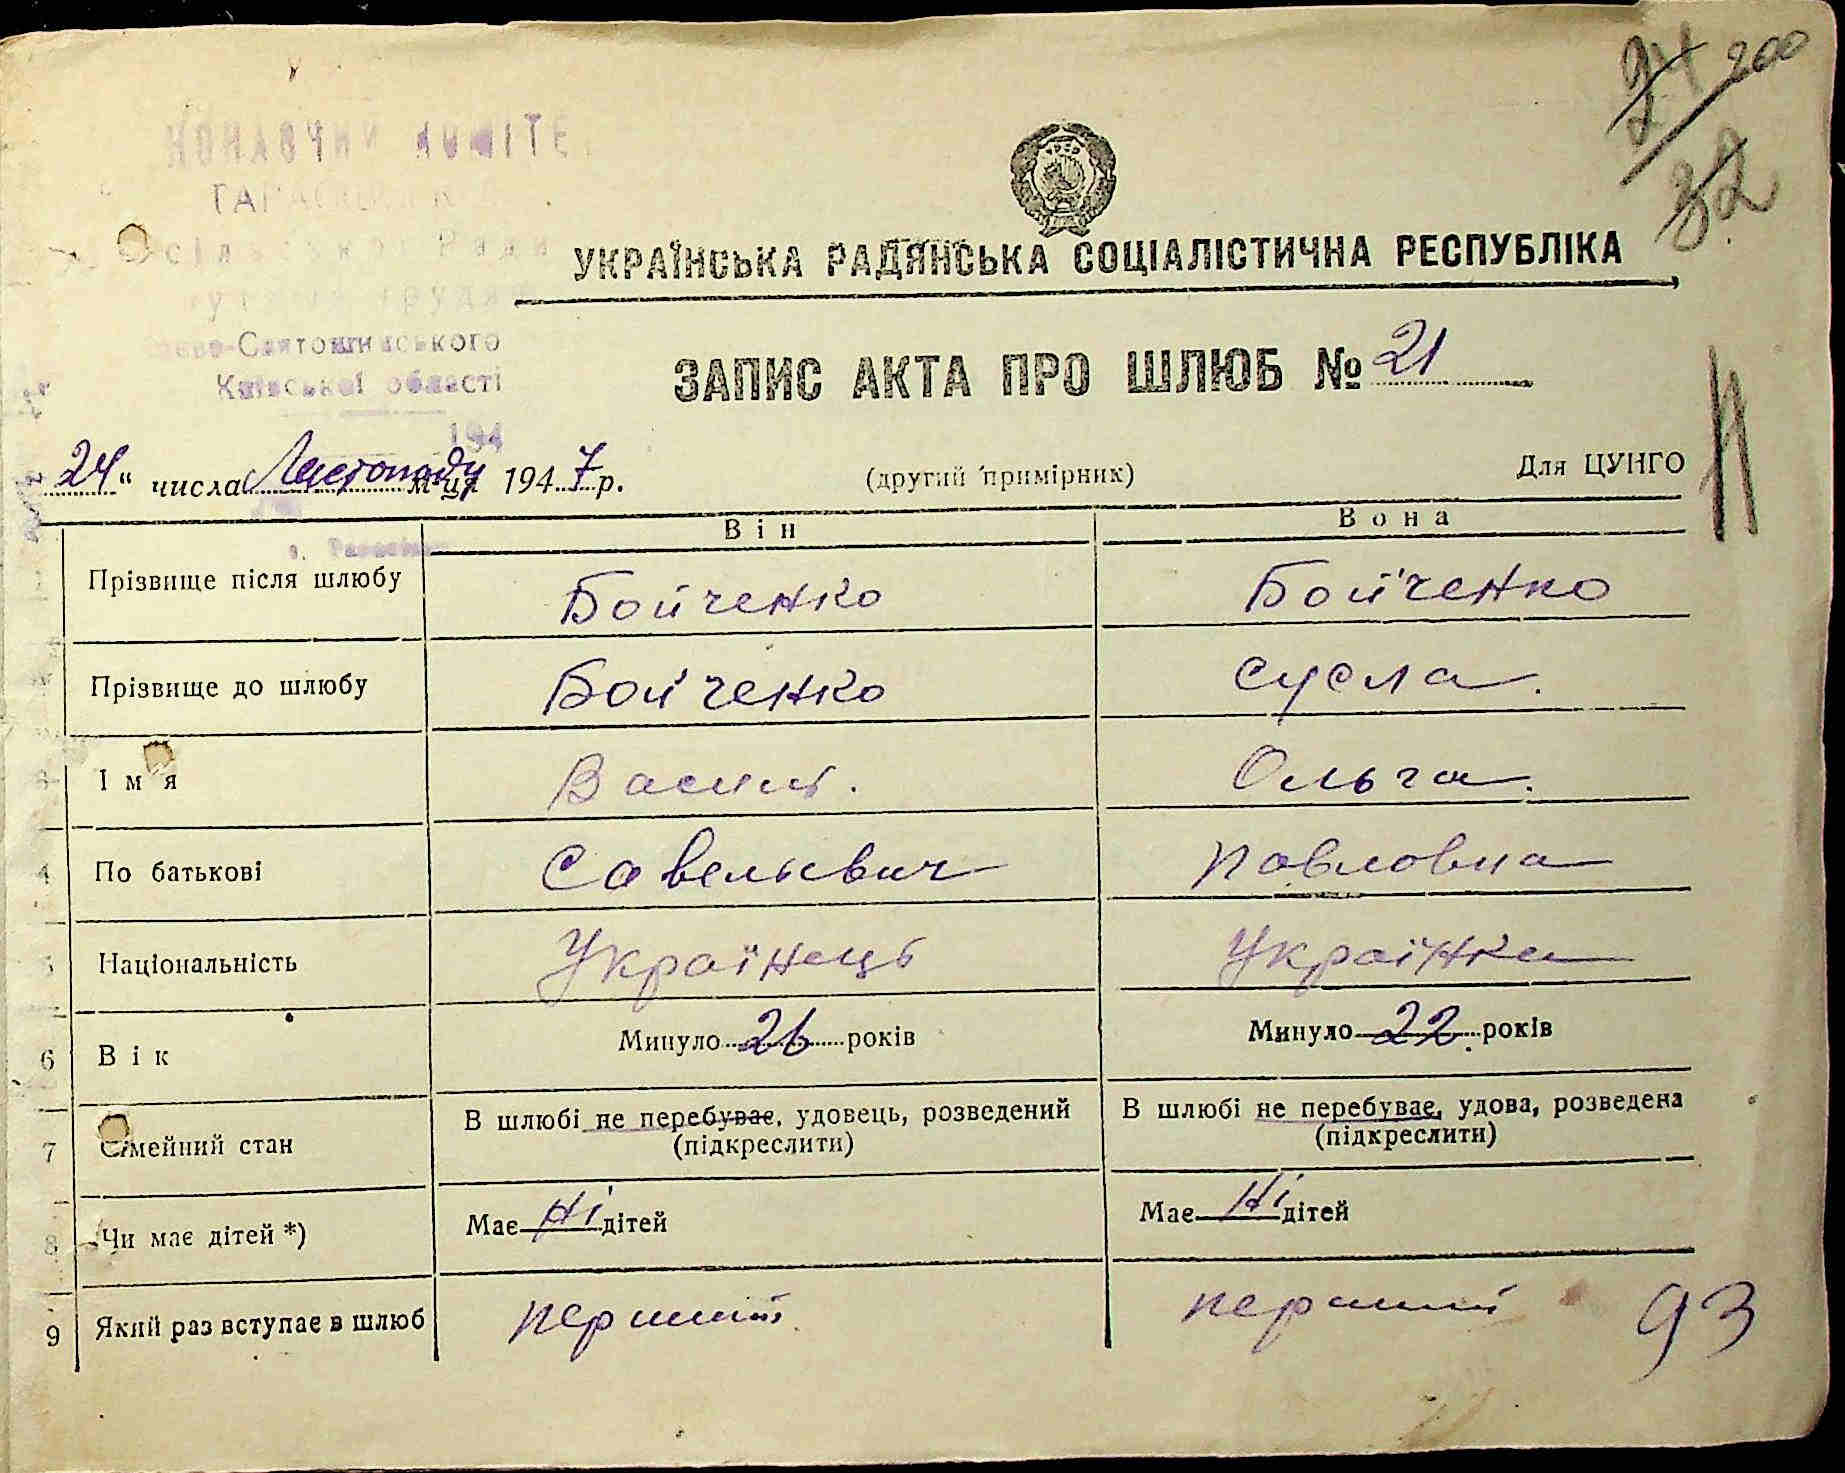 24 200
32
сільської Ради
Святошинського
Київської області
194
УКРАЇНСЬКА РАДЯНСЬКА СОЦІАЛІСТИЧНА РЕСПУБЛІКА
ЗАПИС АКТА ПРО ШЛЮБ № 21
24 " числа Листопаду м-ця 1947 р.
(другий примірник)
Для ЦУНГО
Він Вона
Прізвище після шлюбу Бойченко Бойченко
Прізвище до шлюбу Бойченко Сусла.
Ім'я Василь. Ольга.
4 По батькові Савельевич Павловна
5 Національність Українець Українка
6 Вік Минуло 26 років Минуло 22 років
7 Сімейний стан В шлюбі не перебуває, удовець, розведений (підкреслити) В шлюбі не перебуває, удова, розведена (підкреслити)
8 Чи має дітей *) Має Ні дітей Має Ні дітей
9 Який раз вступає в шлюб перший перший
93